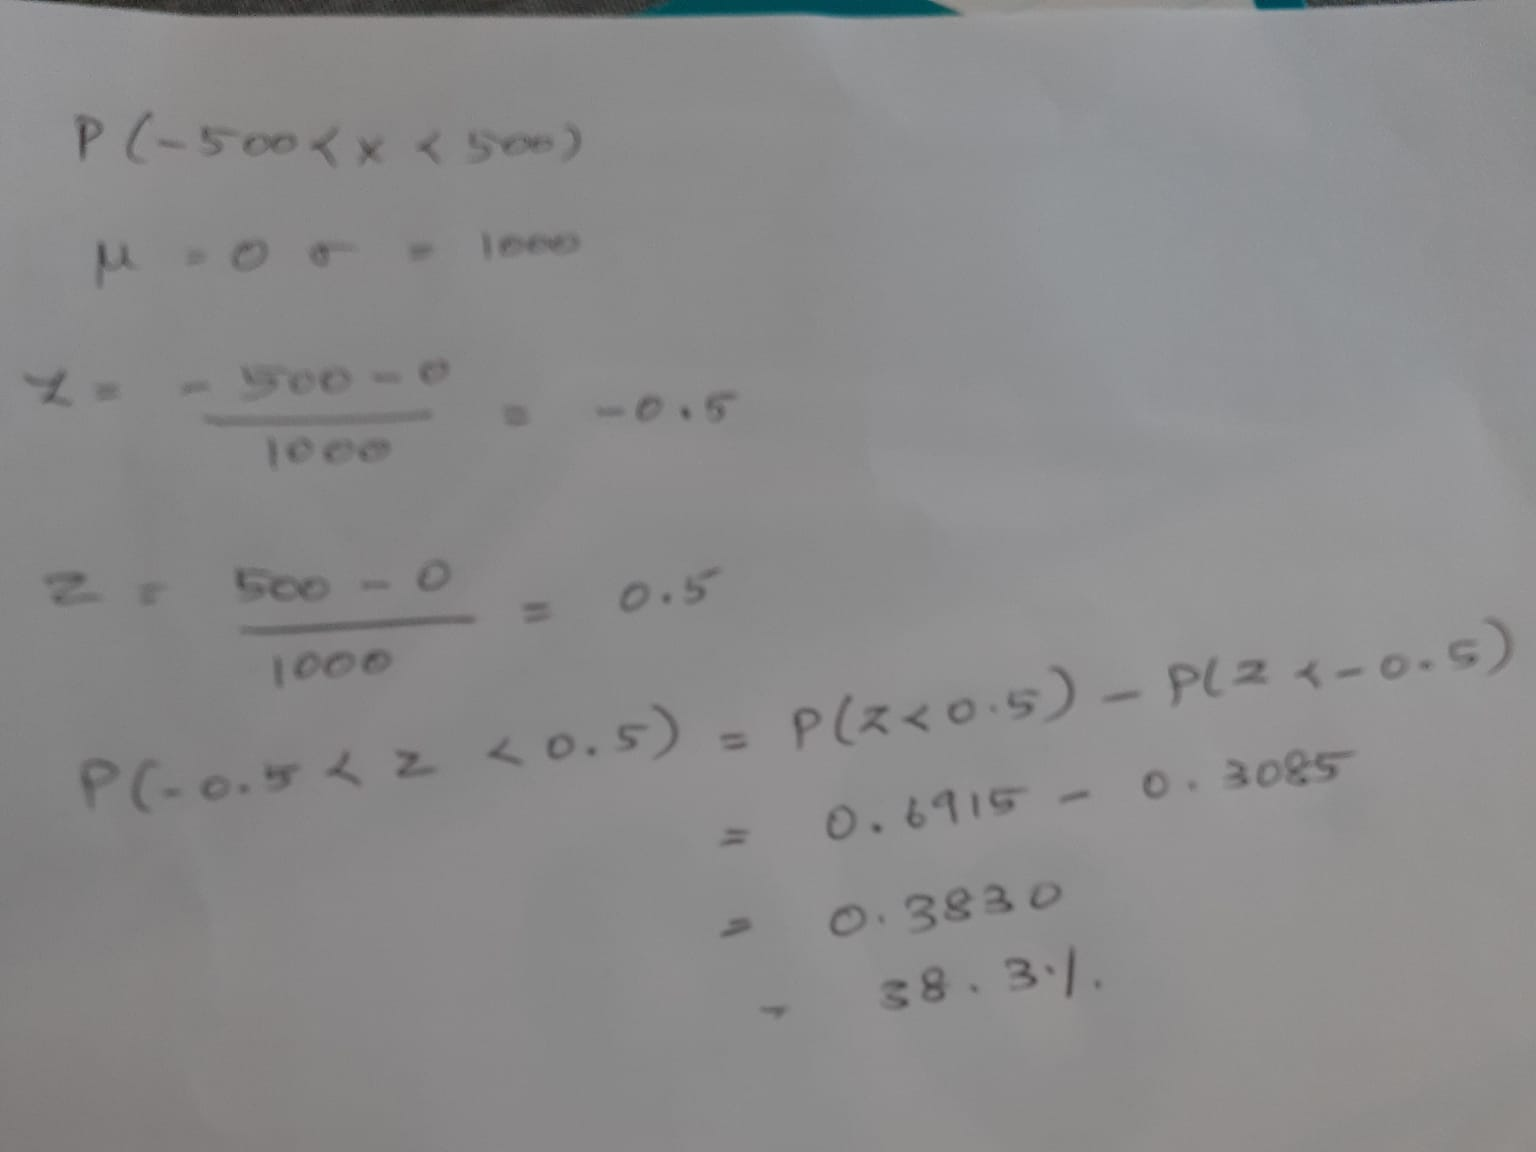 P(-500 < x < 500)
μ = 0 σ = 1000
Z = - 500 - 0 / 1000 = -0.5
Z = 500 - 0 / 1000 = 0.5
P(-0.5 < Z < 0.5) = P(Z < 0.5) - P(Z < -0.5)
= 0.6915 - 0.3085
= 0.3830
- 38.3%.